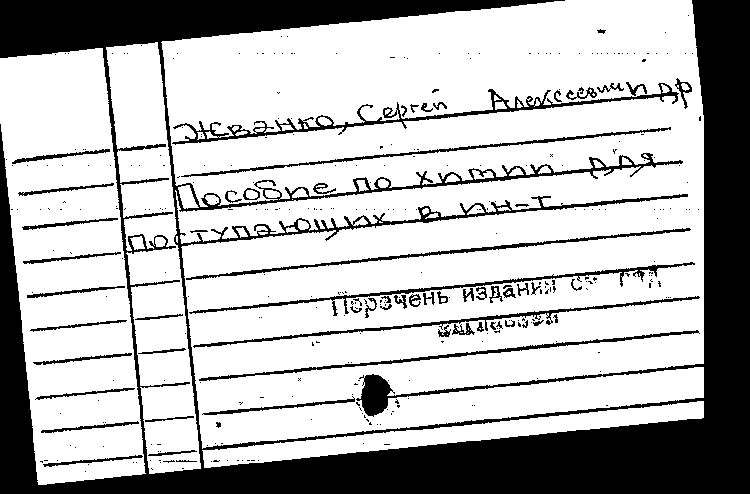 Жванко, Сергей Алексеевич и др
Пособие по химии для
поступающих в ин-т.
Перечень издания см